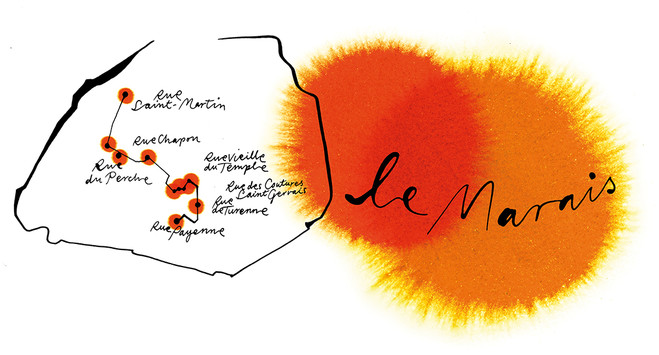 Rue
Saint-Martin
Rue Chapon
Rue
du Perche
Rue Vieille
du Temple
Rue des Coutures
Saint Gervais
Rue
de Turenne
Rue Payenne
le Marais